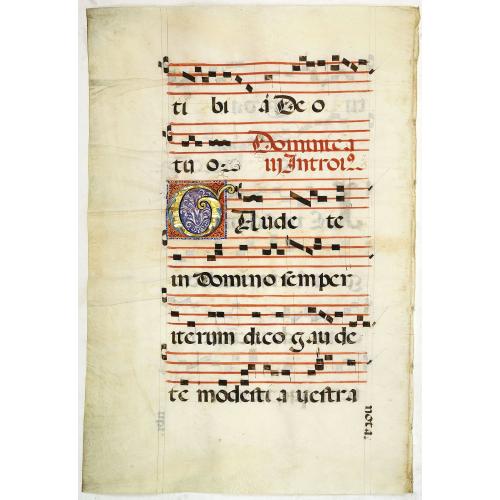 ti bi a Deo
tuo. Dominica
iij Introi9.
Gaude te
in Domino semper
iterum dico gaude
te modesti a vestra
nota.